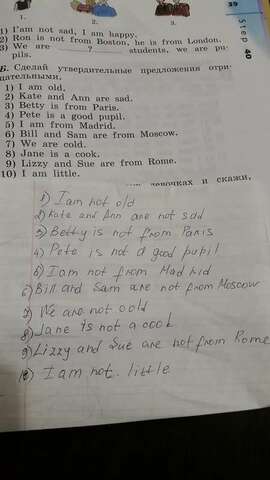 1.
2.
3.
1) I'am not sad, I am happy.
2) Ron is not from Boston, he is from London.
3) We are ____?____ students, we are pu-
pils.
Б. Сделай утвердительные предложения отри-
цательными.
1) I am old.
2) Kate and Ann are sad.
3) Betty is from Paris.
4) Pete is a good pupil.
5) I am from Madrid.
6) Bill and Sam are from Moscow.
7) We are cold.
8) Jane is a cook.
9) Lizzy and Sue are from Rome.
10) I am little.
девочках и скажи,
39
Step
40
1) I am not old
2) Kate and Ann are not sad
3) Betty is not from Paris
4) Pete is not a good pupil
5) I am not from Madrid
6) Bill and Sam are not from Moscow
7) We are not cold
8) Jane is not a cook
9) Lizzy and Sue are not from Rome
10) I am not little